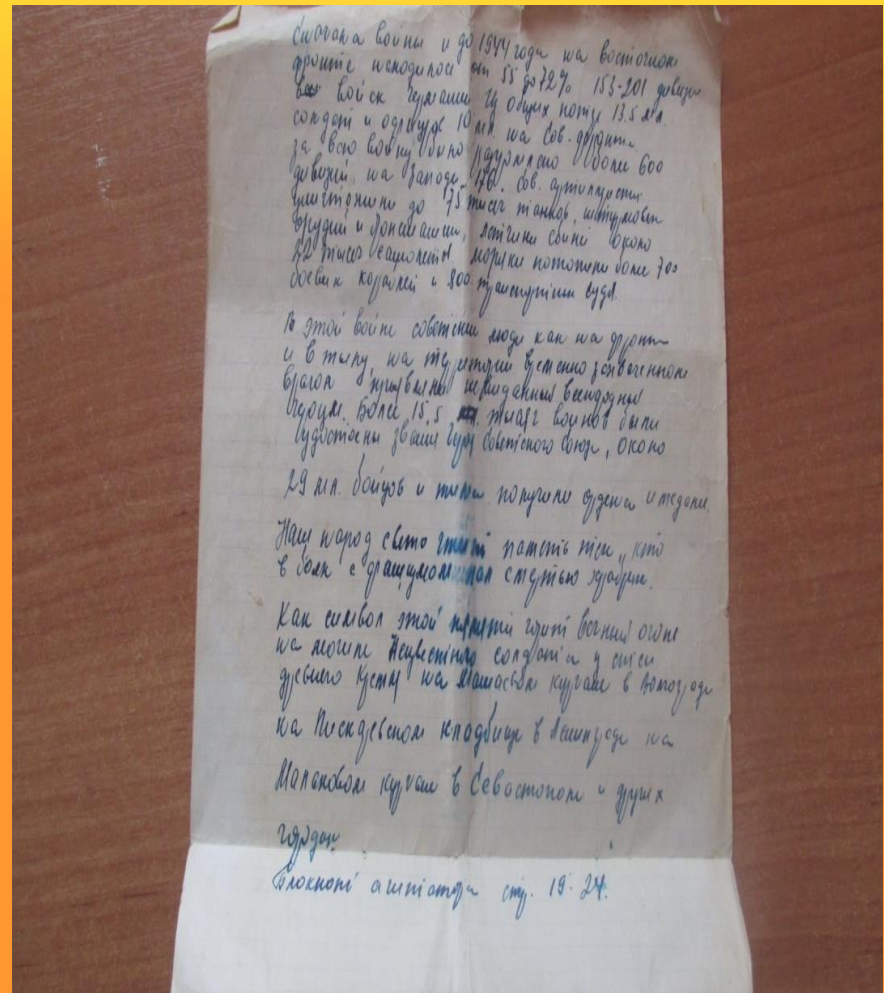 Сначала войны и до 1944 года на восточном
фронте находилось от 55 до 72% 153-201 дивизии
войск Германии Из общих потерь 13.5 мл.
солдат и офицеров 10 мл. на Сов. фронте
за всю войну было разгромлено более 600
дивизий на западе 176. Сов. артиллеристы
уничтожили до 75 тысяч танков, штурмовых
орудий и летчики сбили около
22 тысяч самолетов моряки потопили более 700
боевых кораблей и 800 транспортных судов.
В этой войне советские люди как на фронте
и в тылу, на территории временно захваченной
врагом, проявляли невиданный всенародный
Более 15,5 тысяч воинов были
удостоены звания Героя Советского Союза, около
29 мл. бойцов и тыла получили ордена и медали.
Наш народ свято чтит память тех, кто
в боях с фашизмом пал смертью храбрых.
Как символ этой памяти горит вечный огонь
на могиле Неизвестного солдата у стен
древнего Кремля на Мамаевом кургане в Волгограде
на Пискаревском кладбище в Ленинграде на
Малаховом кургане в Севастополе и других
городах
Блокнот агитатора стр. 19-24.